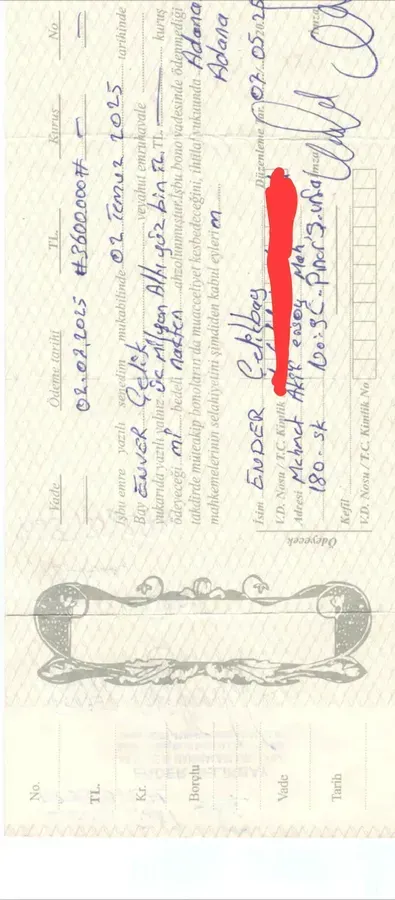 Vade Ödeme tarihi TL. Kuruş No
02.07.2025 #3600.000#
İşbu emre yazılı senedim mukabilinde 02 Temuz 2025 tarihinde
Bay ENVER Çelik veyahut emrühavale
yukarıda yazılı yalnız üç milyon Altı yüz bin TL. kuruş
ödeyeceğim bedeli nakten ahzolunmuştur. İşbu bono vadesinde ödenmediği
takdirde müteakip bonoların da muacceliyet kesbedeceğini, ihtilaf vukuunda Adana
mahkemelerinin selahiyetini şimdiden kabul eylerim Adana
Ödeyecek
İsim ENDER Düzenleme Tar.
V.D. Nosu / T.C. Kimlik
Adresi Mehmet Akif ersoy Mah
180.sk No: İmza
Kefil
V.D. Nosu / T.C. Kimlik No
İmza
No.
TL.
Kr.
Borçlu
Vade
Tarih